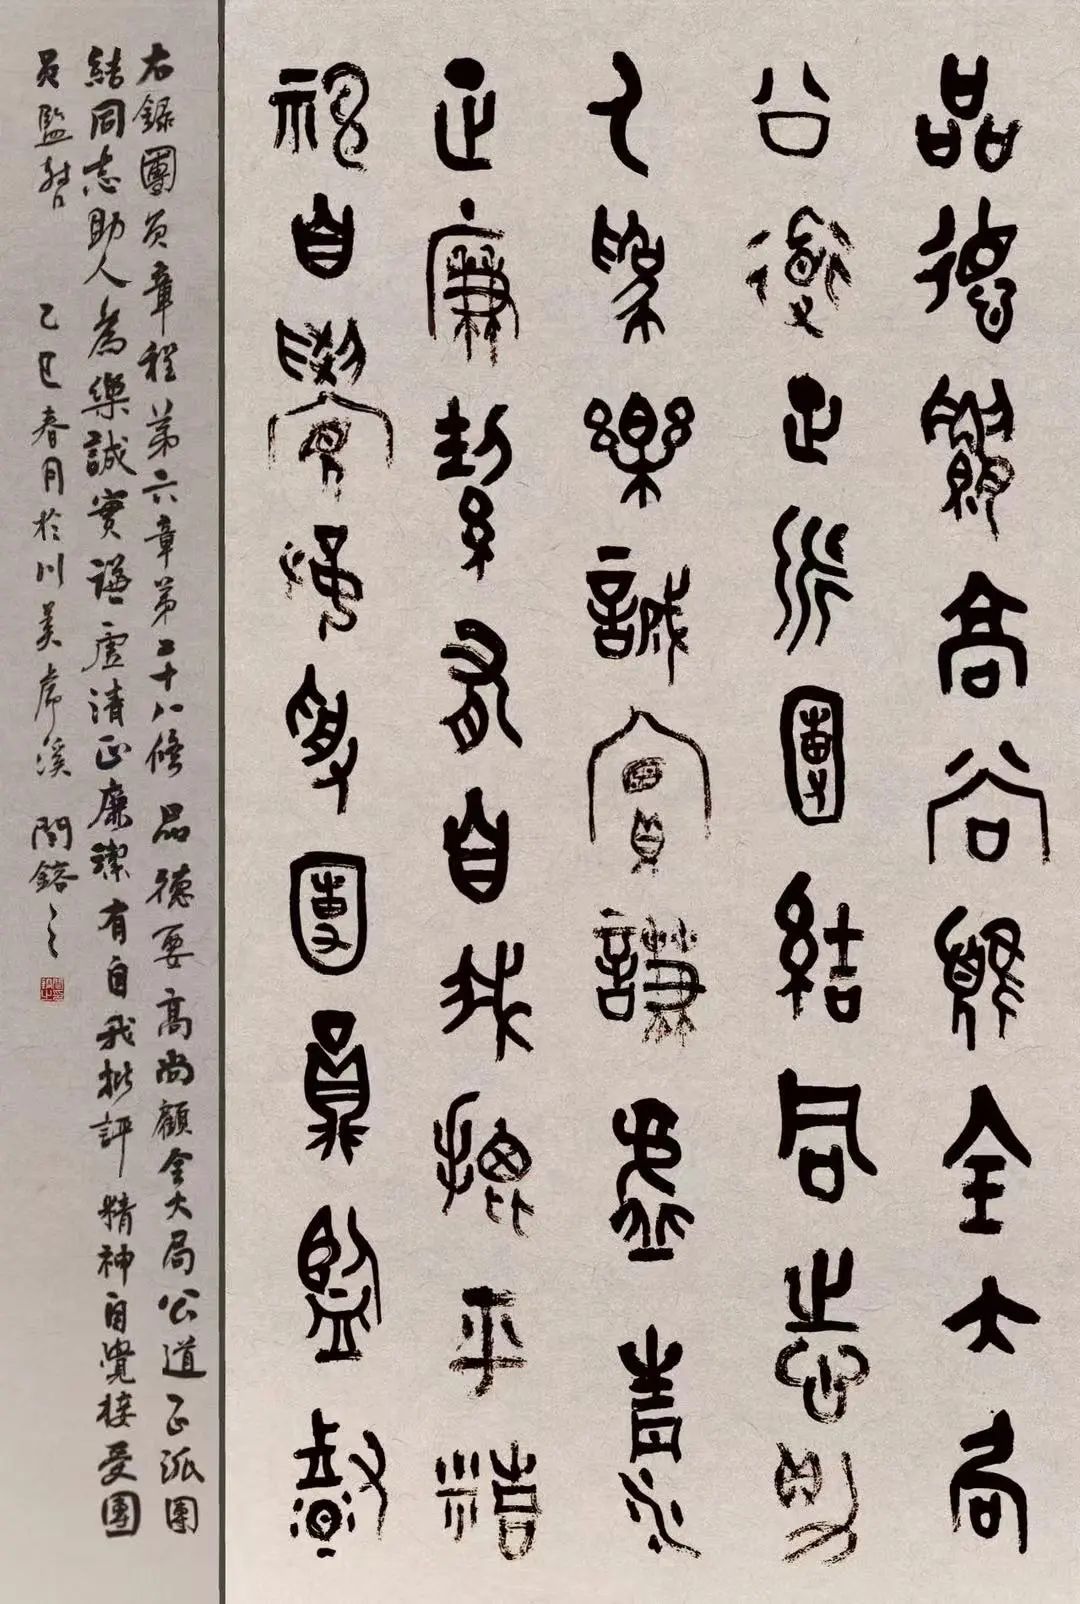 品德要高尚顧全大局
公道正派團結同志助
人為樂誠實謙虛清
正廉潔有自我批評精
神自覺接受團員監督
右錄團員章程第六章第二十八條 品德要高尚顧全大局公道正派團
結同志助人為樂誠實謙虛清正廉潔有自我批評精神自覺接受團
員監督 乙巳春月於川美虎溪